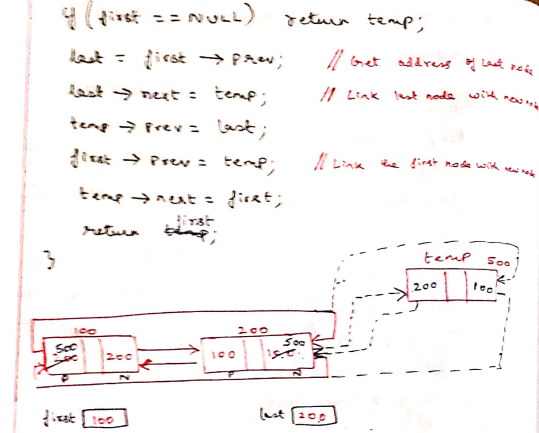 if (first == NULL) return temp;
last = first → prev; // Get address of last node
last → next = temp; // Link last node with new node
temp → prev = last;
first → prev = temp; // Link the first node with new node
temp → next = first;
return first;
}
temp 500
200 100
100 200
500 200
100 500
P N P N
first 100 last 200